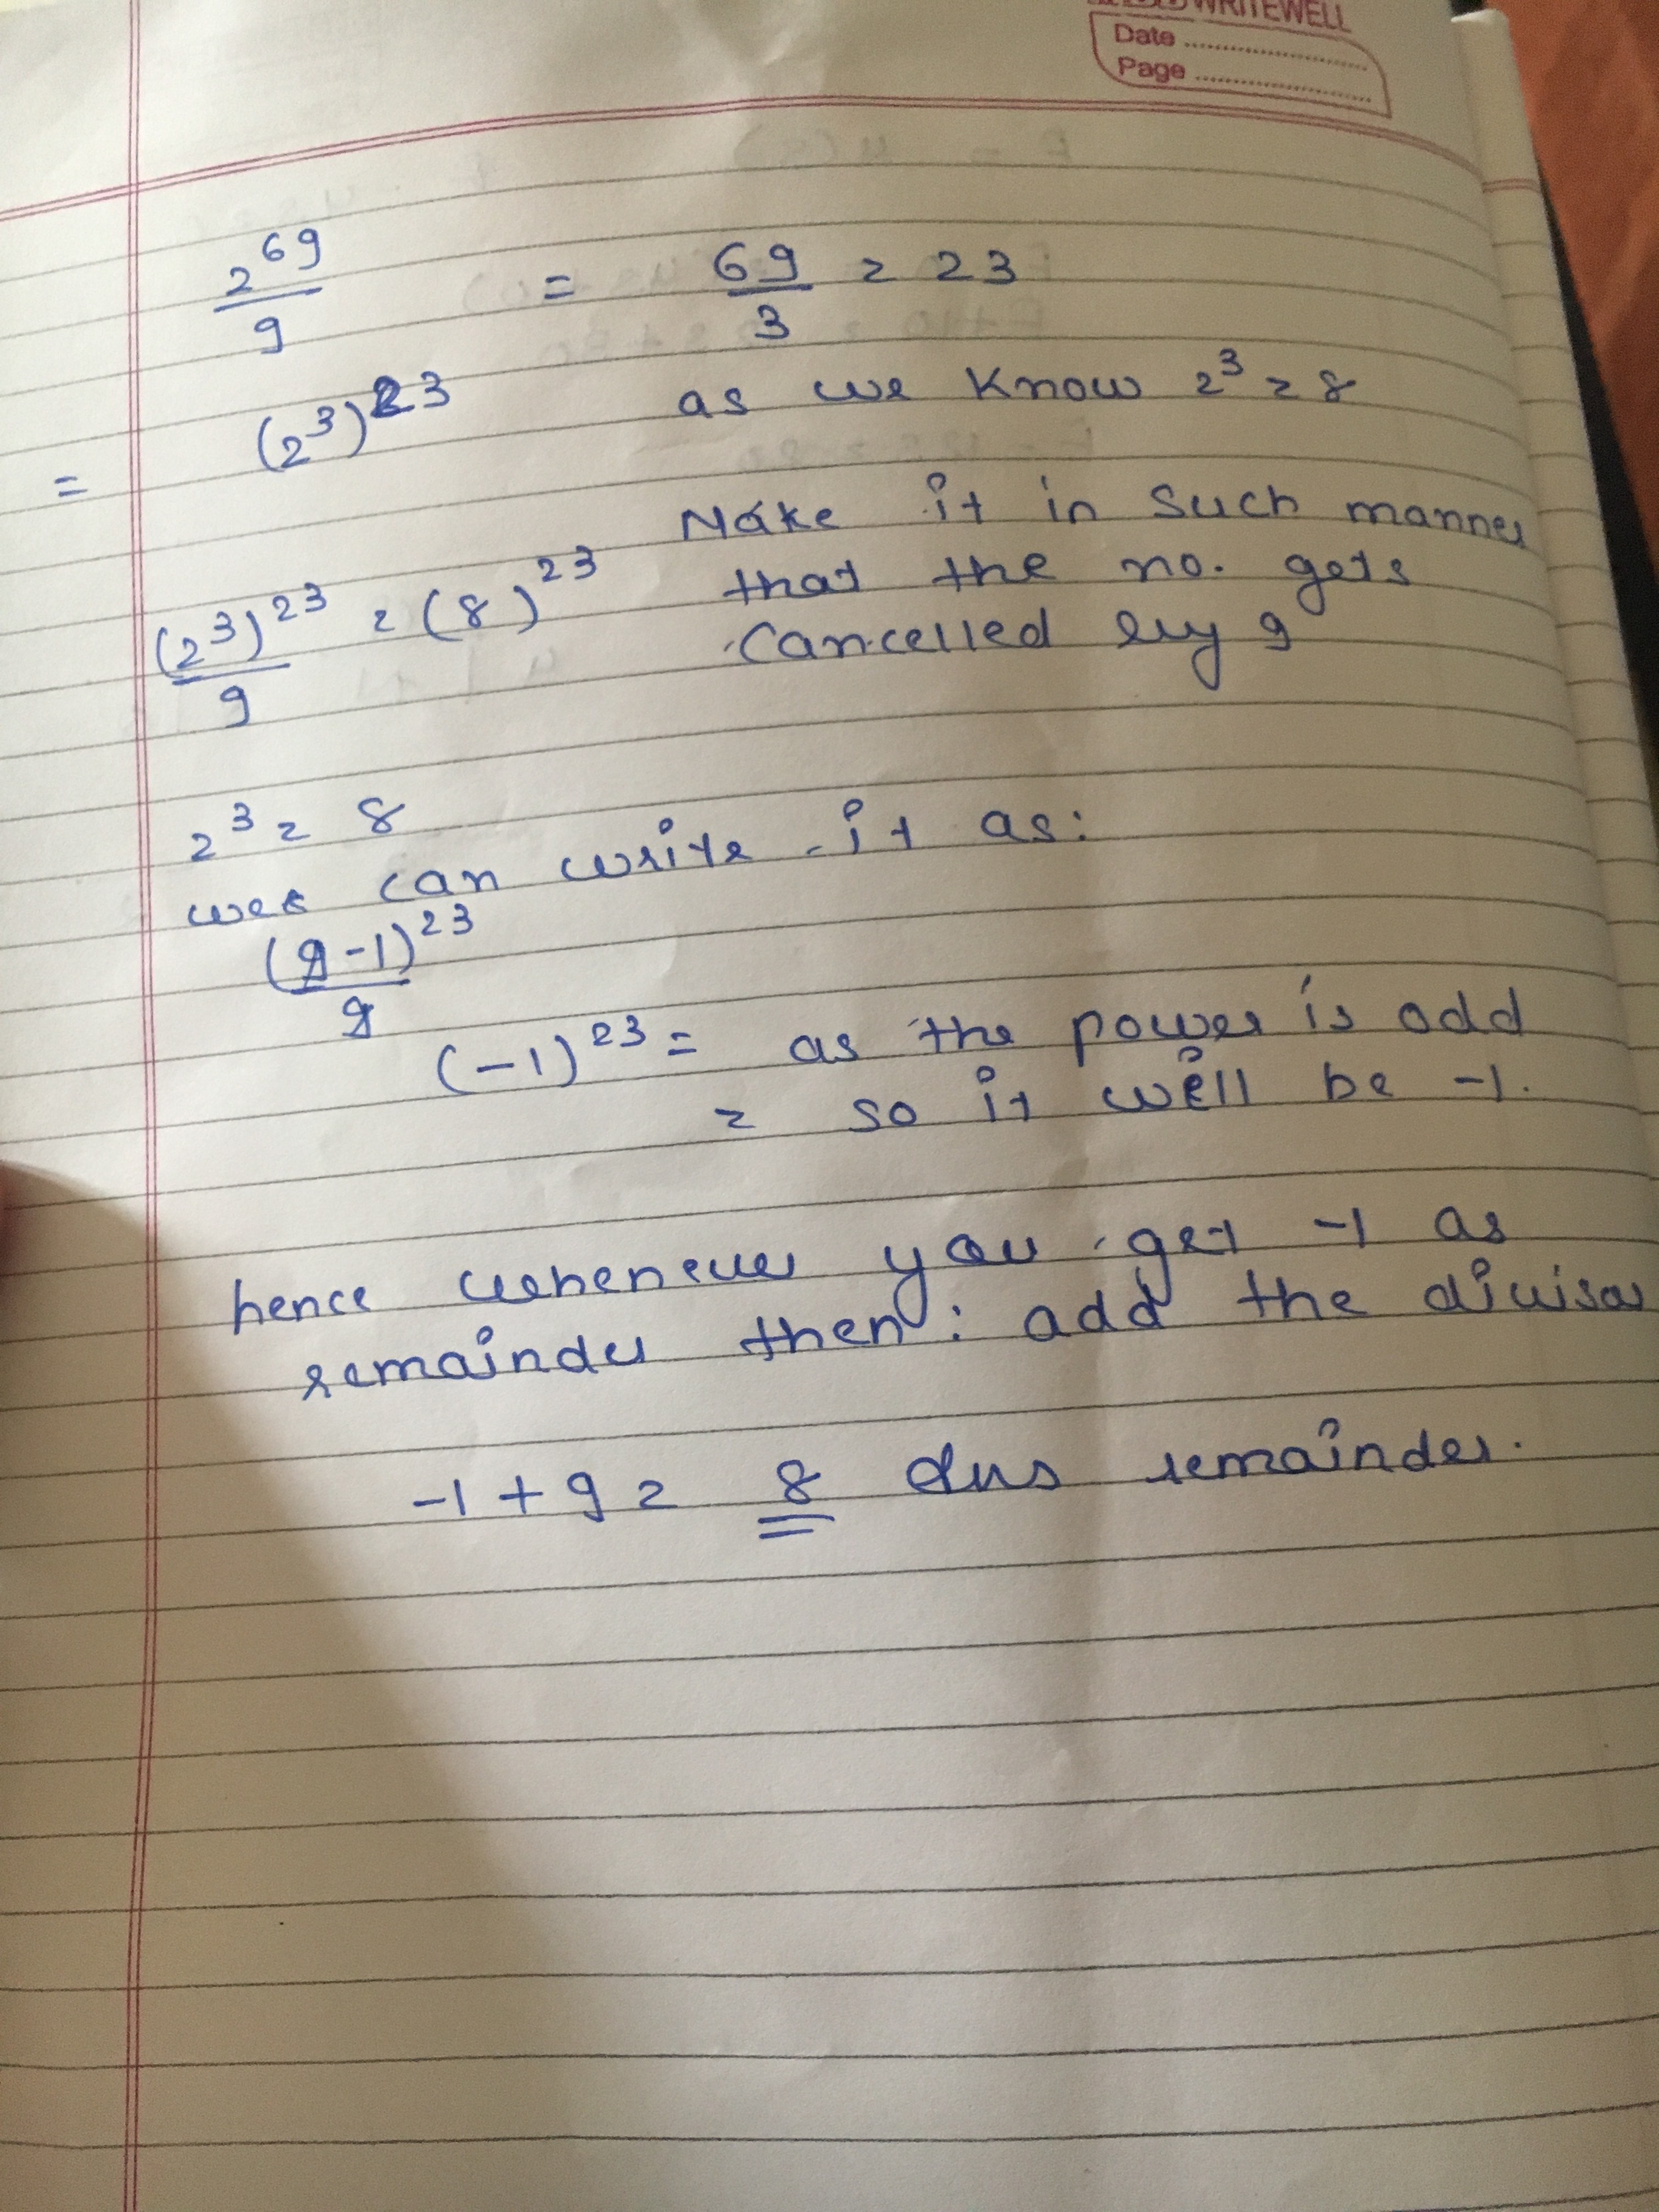 WRITEWELL
Date
Page
2^69/9 = 69/3 = 23
= (2^3)^23 as we know 2^3 = 8
Make it in such manner
(2^3)^23/9 = (8)^23 that the no. gets
cancelled by 9
2^3 = 8
we can write it as:
(9-1)^23/9
(-1)^23 = as the power is odd
= so it will be -1.
hence whenever you get -1 as
remainder then: add the divisor
-1+9 = 8 Ans remainder.